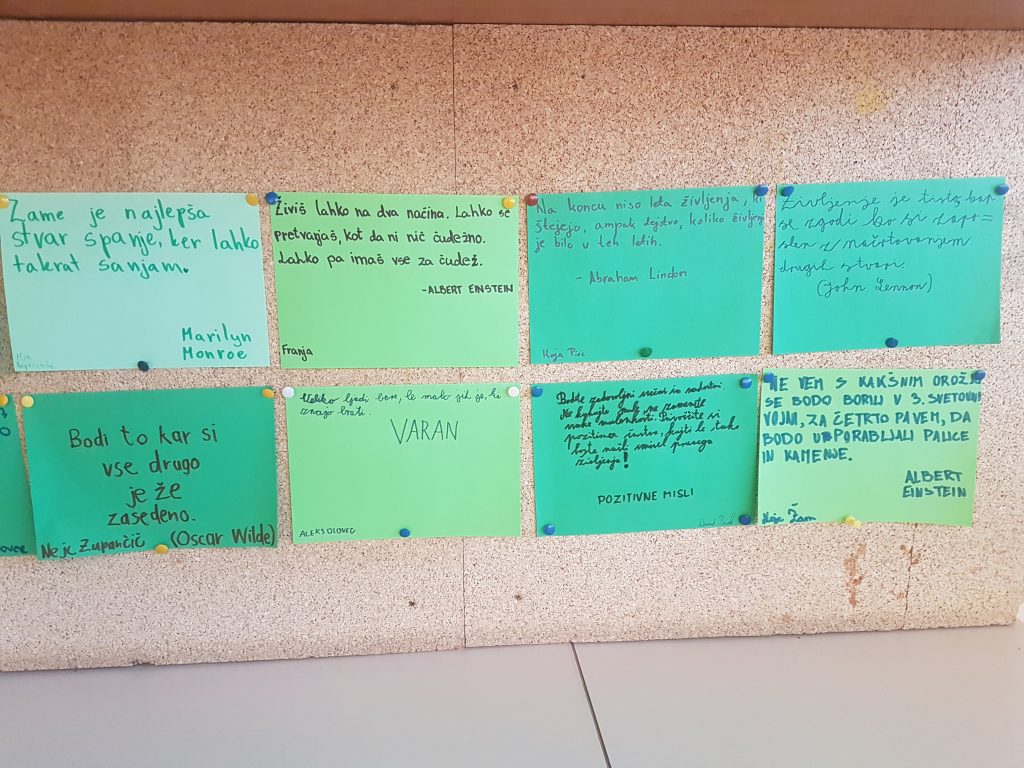 Zame je najlepša
stvar spanje, ker lahko
takrat sanjam.
Marilyn
Monroe
Mia
Živiš lahko na dva načina. Lahko se
pretvarjaš, kot da ni nič čudežno.
Lahko pa imaš vse za čudež.
-ALBERT EINSTEIN
Franja
Na koncu niso leta življenja, ki
štejejo, ampak dejstvo, koliko življenj
je bilo v teh letih.
- Abraham Lincon
Življenje je tisto, kar
se zgodi ko si zapo=
slen z načrtovanjem
drugih stvari.
(John Lennon)
Bodi to kar si
vse drugo
je že
zasedeno.
Nejc Zupančič (Oscar Wilde)
Veliko ljudi bere, le malo jih je, ki
znajo brati.
VARAN
ALEKS OLOVEC
Bodite zadovoljni srečni in radostni.
Ne
vsake malenkosti. Privoščite si
pozitivna čustva, kajti le tako
boste našli smisel pravega
življenja!
POZITIVNE MISLI
NE VEM S KAKŠNIM OROŽJE
SE BODO BORILI V 3. SVETOVNI
VOJNI, ZA ČETRTO PA VEM, DA
BODO UPORABLJALI PALICE
IN KAMENJE.
ALBERT
EINSTEIN